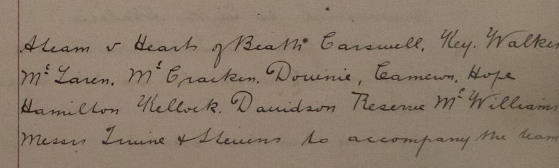 Ateam v Hearts of Beath Carswell, Key. Walker
McLaren. McCracken. Downie, Cameron, Hope
Hamilton Kellock. Davidson Reserve McWilliams
Messrs Irvine & Stevens to accompany the team